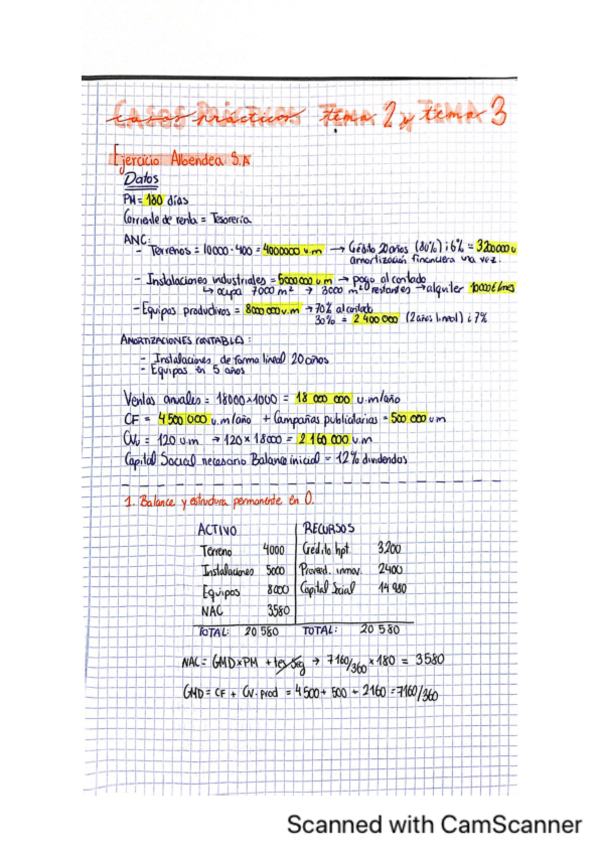 CASOS PRÁCTICOS TEMA 2 y TEMA 3
casos prácticos tema 2 y tema 3
Ejercicio Albendea S.A
Datos
PM = 180 días
Corriente de renta = Tesorería
ANC:
- Terrenos = 10000 · 400 = 4000000 u.m → Crédito 20 años (80%) i 6% = 3200000 u
amortización financiera una vez.
- Instalaciones industriales = 5000000 u.m → pago al contado
↳ ocupa 7000 m² → 3000 m² restantes → alquiler 10000€/mes
- Equipos productivos = 8000000 u.m → 70% al contado
30% = 2 400 000 (2 años lineal) i 7%
AMORTIZACIONES CONTABLES:
- Instalaciones de forma lineal 20 años
- Equipos en 5 años
Ventas anuales = 18000 × 1000 = 18 000 000 u.m/año
CF = 4 500 000 u.m/año + Campañas publicitarias = 500 000 um
CVu = 120 u.m → 120 × 18000 = 2 160 000 u.m
Capital Social necesario Balance inicial = 12% dividendos
1. Balance y estructura permanente en 0.
ACTIVO RECURSOS
Terreno 4000 Crédito hpt. 3200
Instalaciones 5000 Proveed. inmov. 2400
Equipos 8000 Capital Social 14 980
NAC 3580
TOTAL: 20 580 TOTAL: 20 580
NAC = GMD × PM + tes seg → 7160/360 × 180 = 3580
GMD = CF + CV. prod = 4500 + 500 + 2160 = 7160/360
Scanned with CamScanner